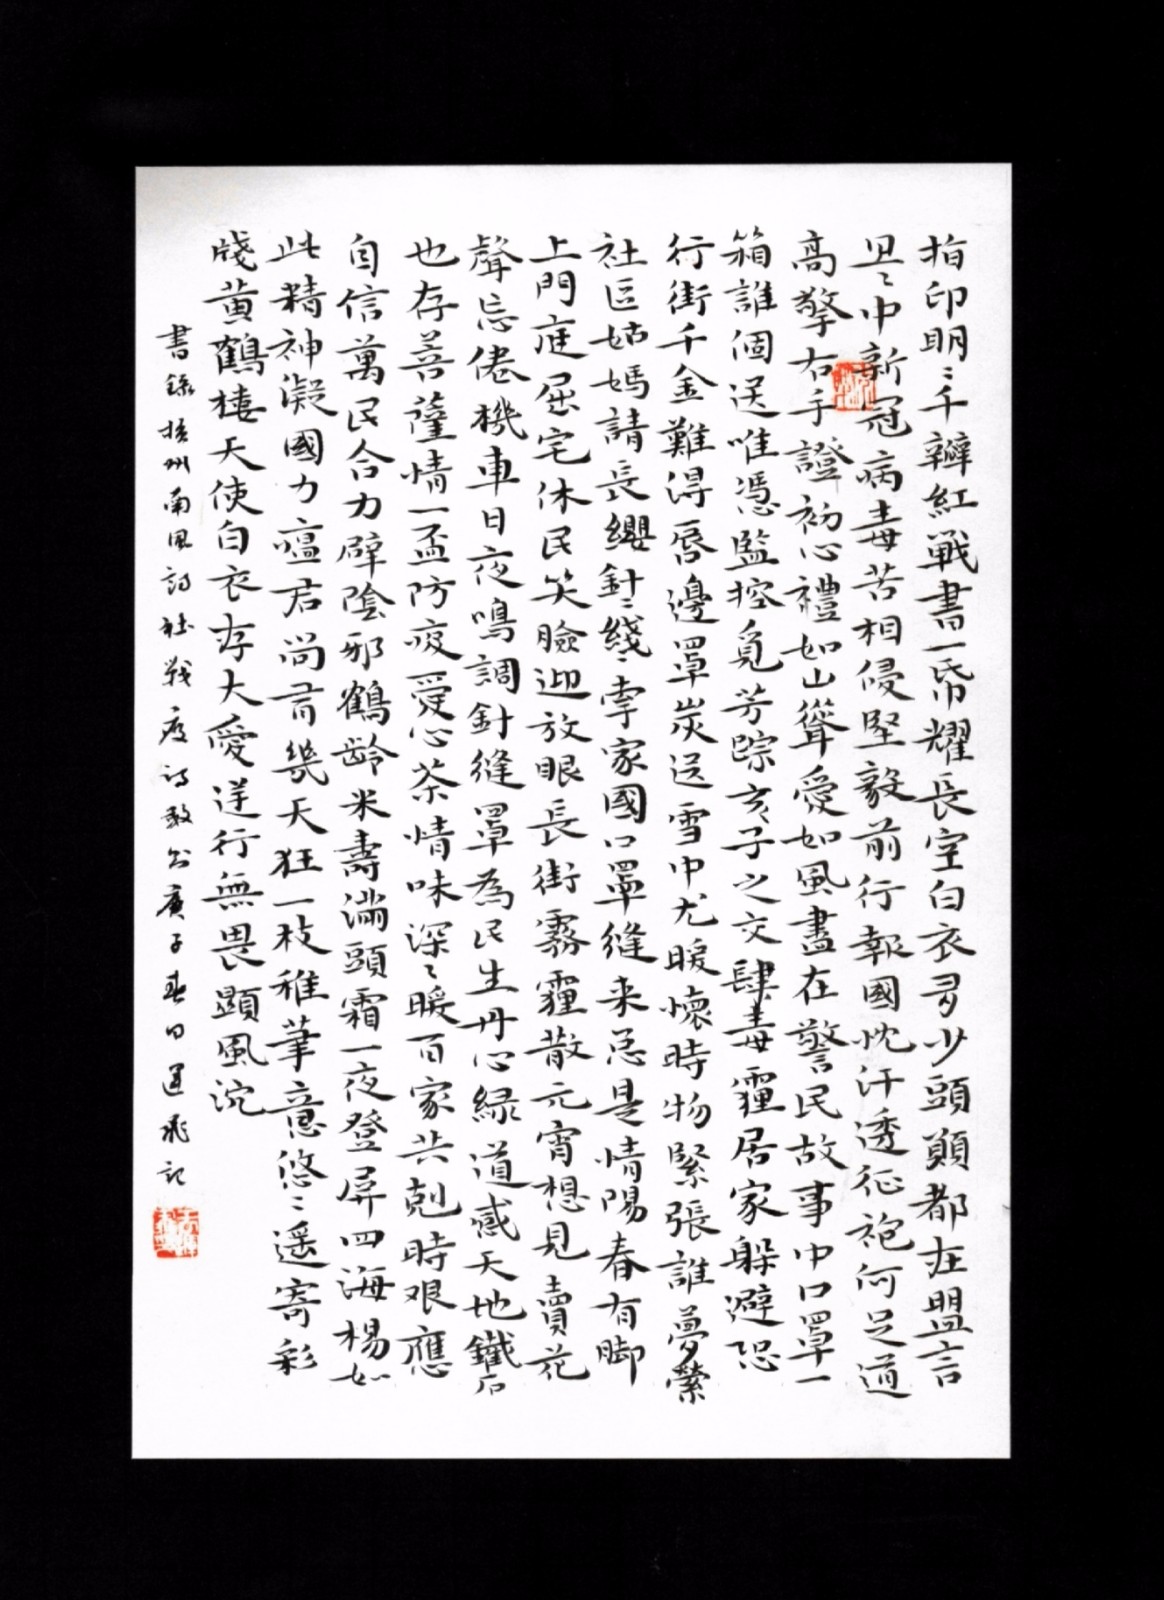 指印明〻千瓣紅戰書一帋耀長空白衣多少頭顱都在盟言
里〻中新冠病毒苦相侵堅毅前行報國忱汗透征袍何足道
高擎右手證初心禮如山聳愛如風盡在警民故事中口罩一
箱誰個送唯憑監控覓芳踪亥子之交肆毒霾居家躲避恐
行街千金難得唇邊罩炭送雪中尤暖懷時物緊張誰夢縈
社區姑媽請長纓針〻綫〻牽家國口罩縫来总是情陽春有脚
上門庭屈宅休民笑臉迎放眼長街霧霾散元宵想見賣花
聲忘倦機車日夜鳴調針縫罩為民生丹心緑道感天地鐵石
也存菩薩情一盃防疫愛心茶情味深〻暖百家共剋時艱應
自信萬民合力辟陰邪鶴齡米壽滿頭霜一夜登屏四海揚如
此精神凝國力瘟君尚肯幾天狂一枝稚筆意悠〻遥寄彩
牋黄鶴樓天使白衣存大愛逆行無畏顯風流
書錄梧州南風詩社戰疫詩數首庚子春日運飛記